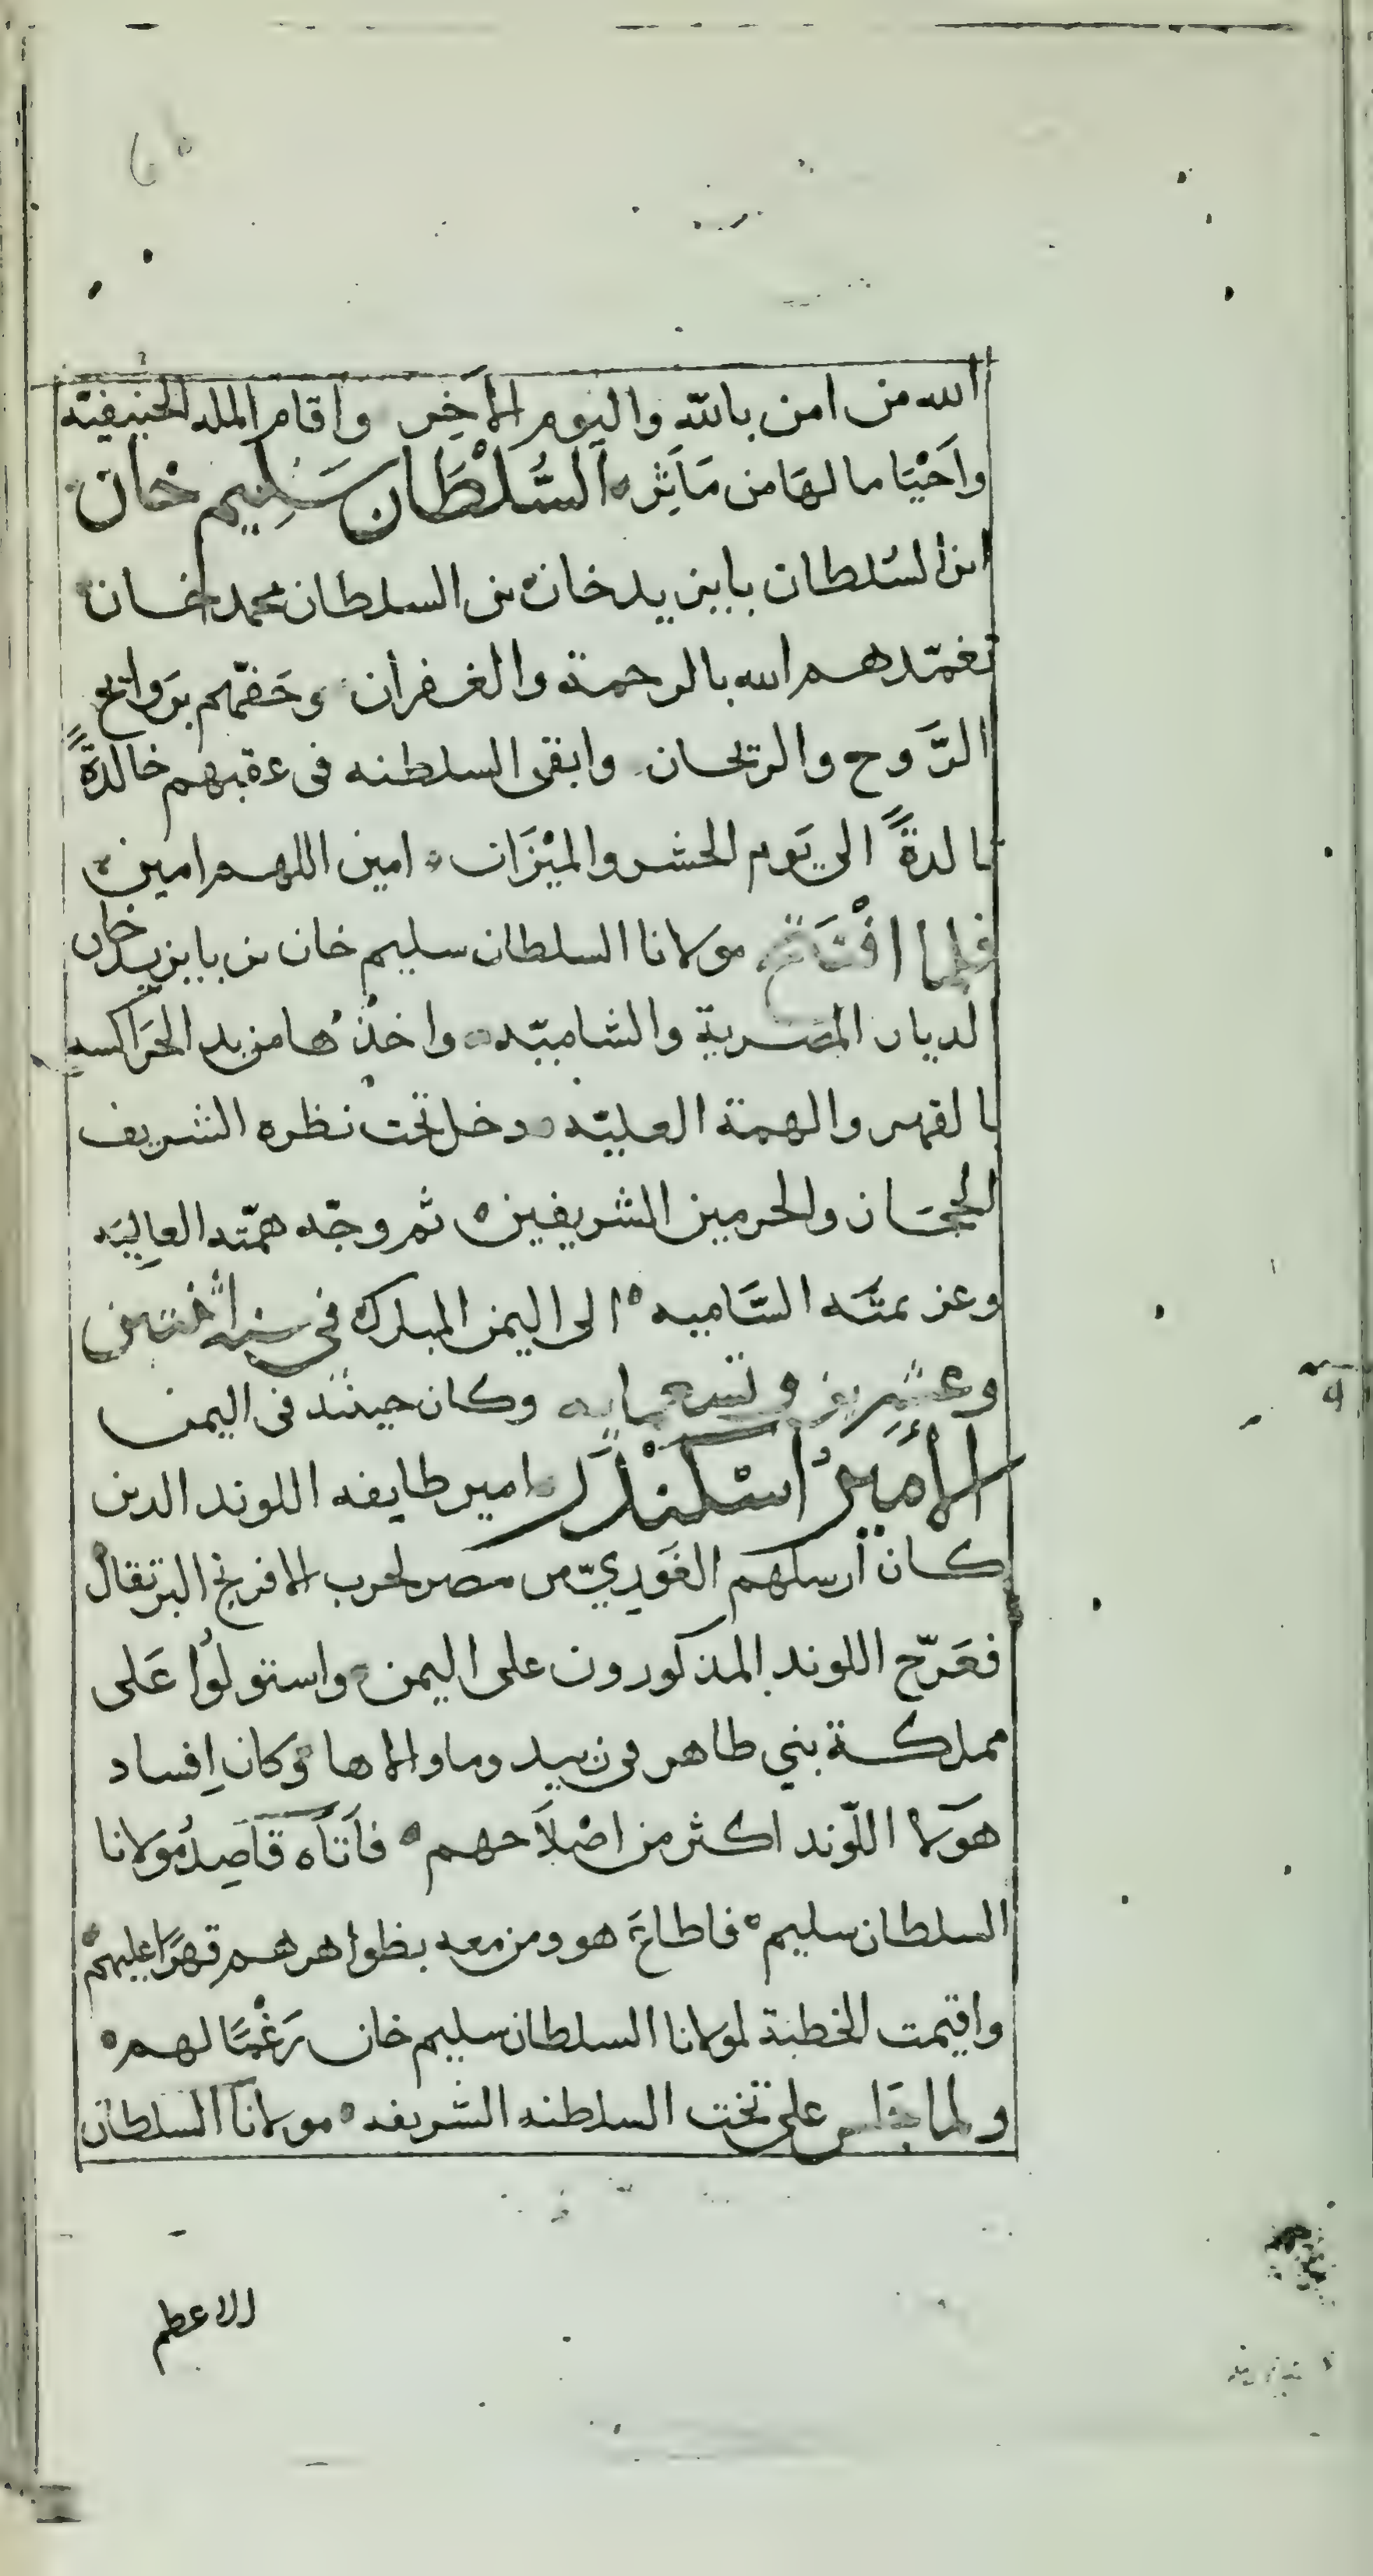 الله من امن بالله واليوم الآخِر وأقام المله الحنيفيّه
واَحْيَا ما لهَا من مَآثِر السُّلْطَان سَلِيم خان
ابن السُلطان بايزيد خان بن السلطان محمد خان
تغمّدهم الله بالرحمة والغفران وحَفّهم برَوايح
الرَّوح والريحان وابقى السلطنه فى عقبهم خالدةً
تالدةً الى يَوم الحشر والميْزَان امين اللهم امين
فلما افْتَتح مولانا السلطان سليم خان بن بايزيد خان
الديار المصرية والشاميّه واخذُها من يد الجَراكسه
بالقهر والهمة العليّه دخل تحت نظره الشريف
الحجَاز والحرمين الشريفين ثم وجّه همّته العالِيَه
وعزيمتَه السَّاميه الى اليمن المبارك فى سنه اثنتين
وعشرين وتسعمايه وكان حينئذ فى اليمن
الأَمَيرُ اسْكَنْدَر امير طايفه اللوند الذين
كان أرسلهم الغَوريّ من مصر لحرب الافرنج البرتقال
فعَرّج اللوند المذكورون على اليمن واستولوُا عَلى
مملكة بني طاهر فى زبيد وما والاها وكان اِفساد
هَولا اللّوند اكثر من اصْلاَحهم فأتَاه قَاصِدُ مولانا
السلطان سليم فاطاعَ هو ومن معه بظواهرهم قهرًا عليهمْ
واقيمت الخطبة لمولانا السلطان سليم خان رَغْمًا لهم
ولما جَلس على تخت السلطنه الشريفه مولانا السلطان
الاعطم